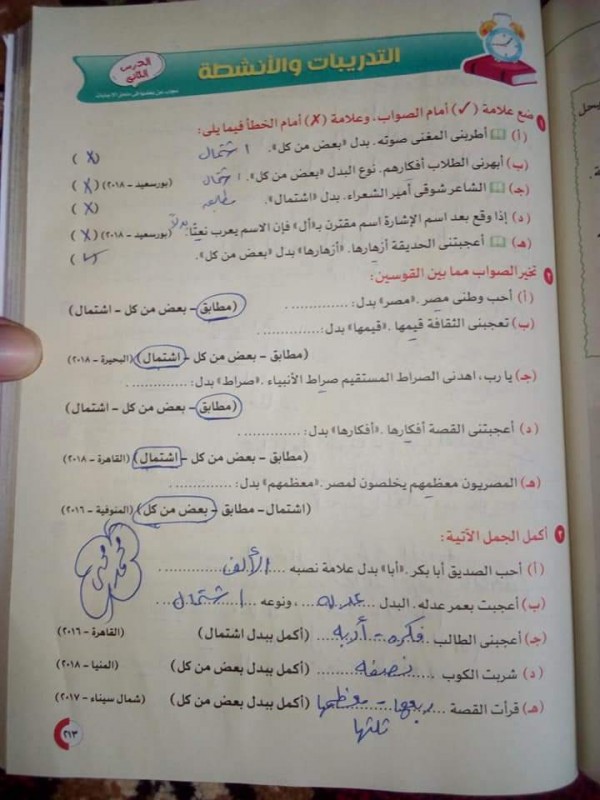 التدريبات والأنشطة
الدرس الثاني
١ ضع علامة (✓) أمام الصواب، وعلامة (✗) أمام الخطأ فيما يلى:
(أ) أطربنى المغنى صوته. بدل «بعض من كل». اشتمال (X)
(ب) أبهرنى الطلاب أفكارهم. نوع البدل «بعض من كل». اشتمال (بورسعيد - ٢٠١٨) (X)
(جـ) الشاعر شوقى أمير الشعراء. بدل «اشتمال». مطابق (X)
(د) إذا وقع بعد اسم الإشارة اسم مقترن بـ«أل» فإن الاسم يعرب نعتًا. بدلاً (بورسعيد - ٢٠١٨) (X)
(هـ) أعجبتنى الحديقة أزهارها. «أزهارها» بدل «بعض من كل».
٢ تخير الصواب مما بين القوسين:
(أ) أحب وطنى مصر. «مصر» بدل: ............. (مطابق - بعض من كل - اشتمال)
(ب) تعجبنى الثقافة قيمها. «قيمها» بدل: .............
(مطابق - بعض من كل - اشتمال) (البحيرة - ٢٠١٨)
(جـ) يا رب، اهدنى الصراط المستقيم صراط الأنبياء. «صراط» بدل: .............
(مطابق - بعض من كل - اشتمال)
(د) أعجبتنى القصة أفكارها. «أفكارها» بدل: .............
(مطابق - بعض من كل - اشتمال) (القاهرة - ٢٠١٨)
(هـ) المصريون معظمهم يخلصون لمصر. «معظمهم» بدل: .............
(اشتمال - مطابق - بعض من كل) (المنوفية - ٢٠١٦)
٣ أكمل الجمل الآتية:
(أ) أحب الصديق أبا بكر. «أبا» بدل علامة نصبه ... الألف ...
(ب) أعجبت بعمر عدله. البدل ... عدله ... ، ونوعه ... اشتمال ...
(جـ) أعجبنى الطالب ... فكره - أدبه ... (أكمل ببدل اشتمال) (القاهرة - ٢٠١٦)
(د) شربت الكوب ... نصفه ... (أكمل ببدل بعض من كل) (المنيا - ٢٠١٨)
(هـ) قرأت القصة ... ربعها - معظمها ... (أكمل ببدل بعض من كل) (شمال سيناء - ٢٠١٧)
ثلثها
٢١٣